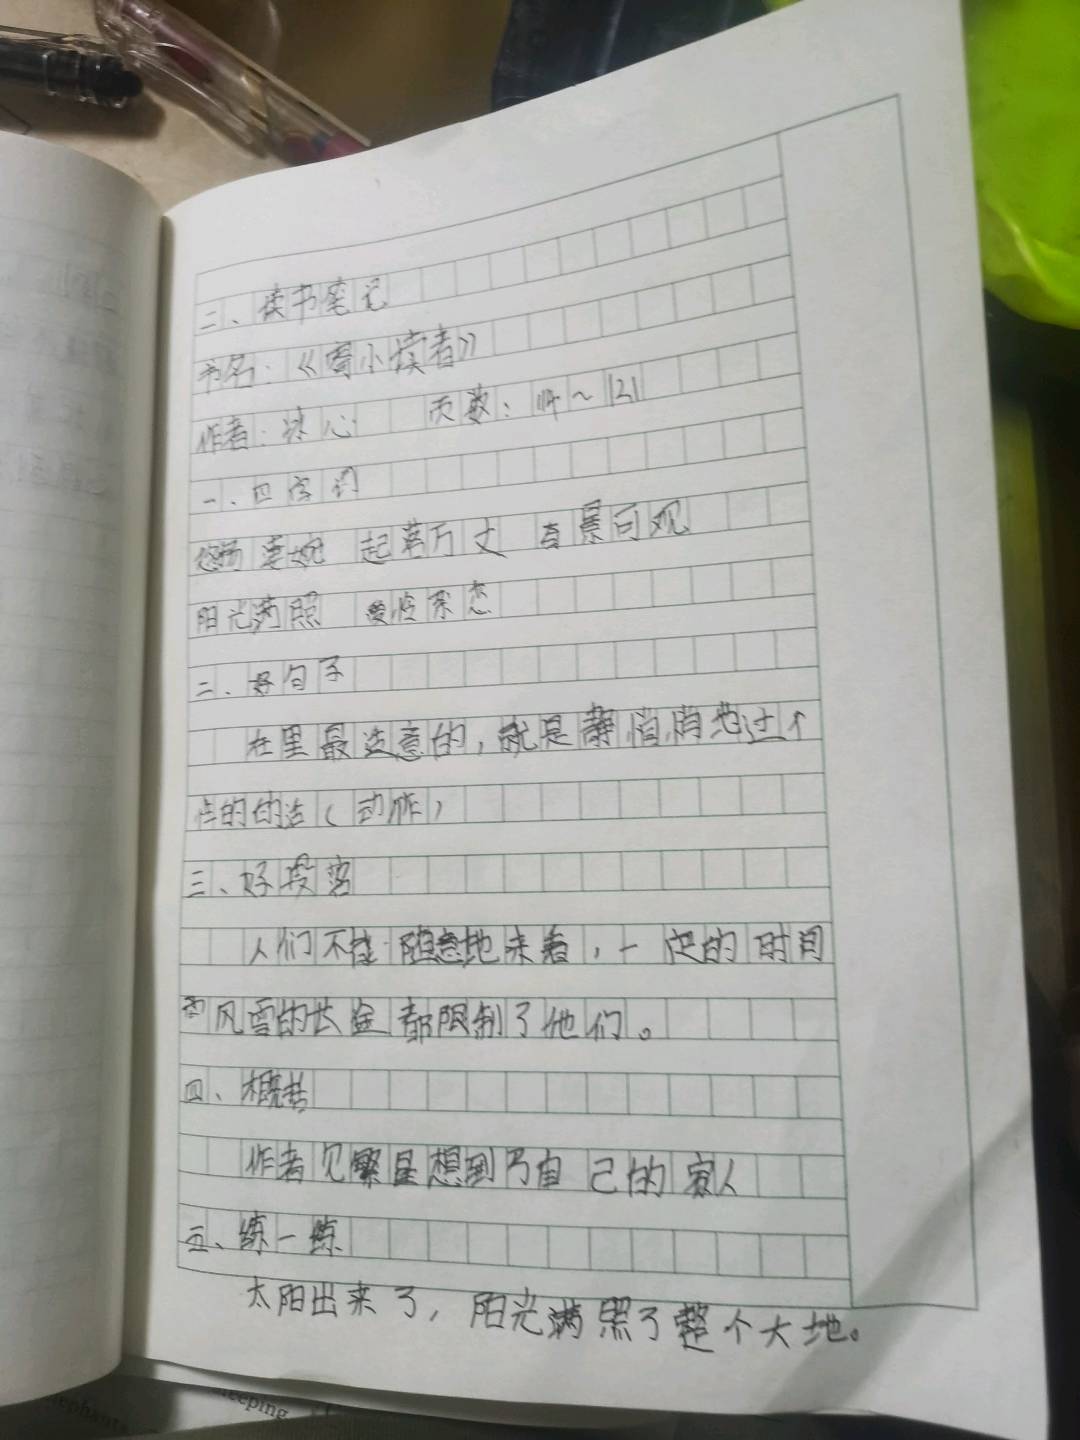 二、读书笔记
书名:《寄小读者》
作者:冰心 页数:114~121
一、四字词
悠扬 万丈 有景可观
阳光满照
二、好句子
在里最注意的,就是静悄悄地过个
的的法(动作)
三、好段落
人们不能随意地来看,一定的时间
和风雪的长途都限制了他们。
四、概括
作者见繁星想到了自己的家人
五、练一练
太阳出来了,阳光满照了整个大地。
eeping
elephants